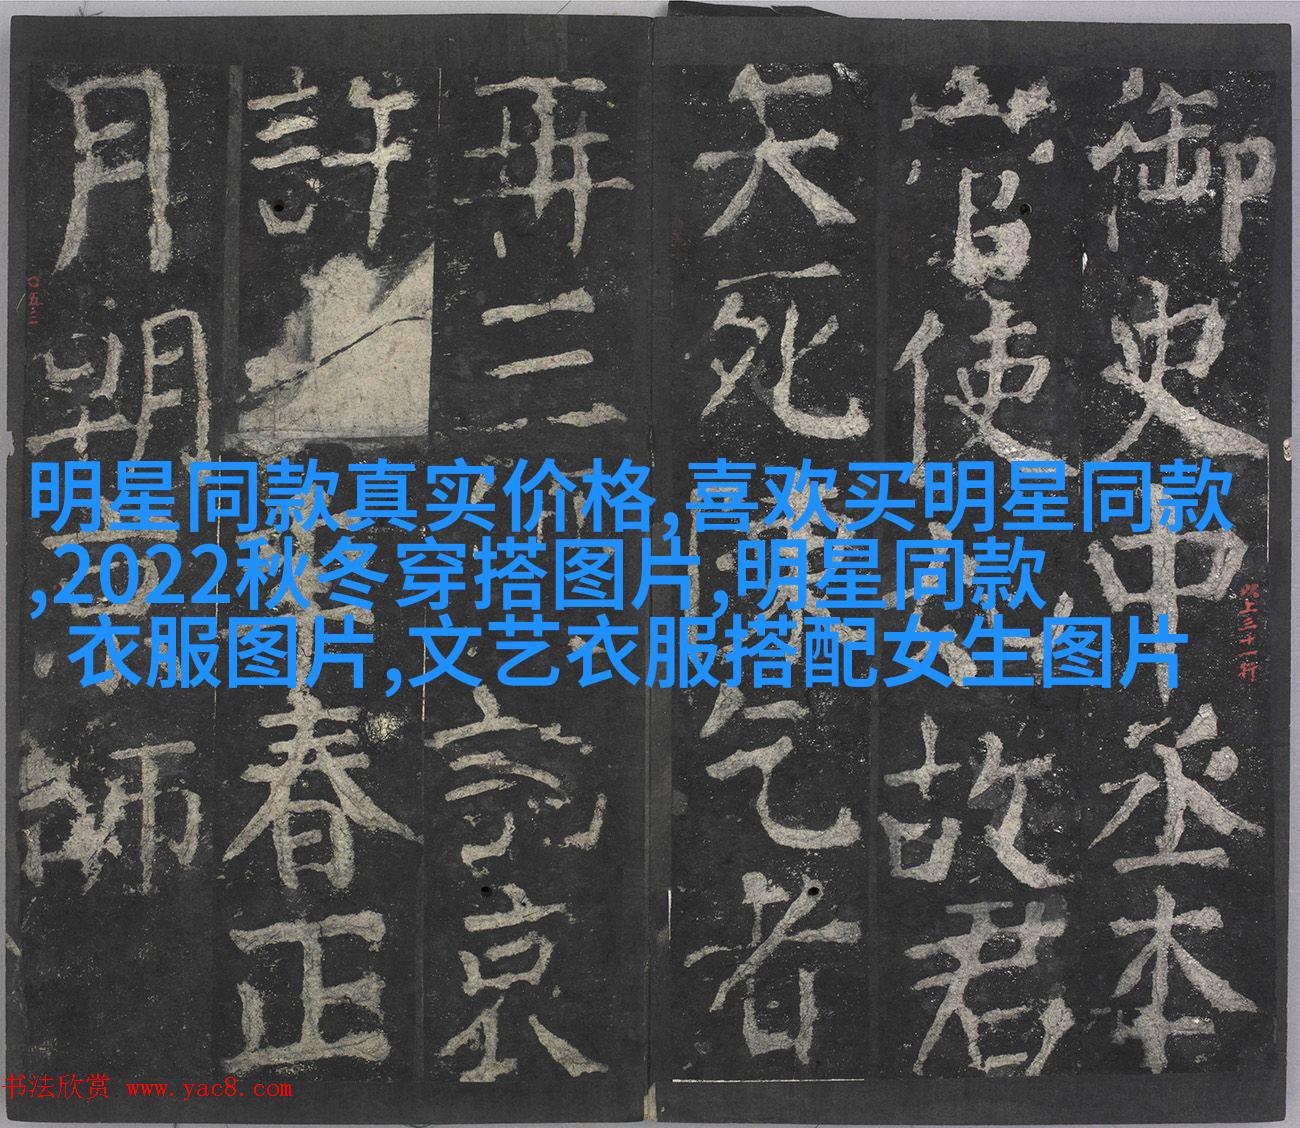 御史中丞本
使
故君
矢死
乞者
再三
京
許
春正
月朔
師
〇五三
此上三十一行
明星同款真实价格,喜欢买明星同款
,2022秋冬穿搭图片,明星同款
衣服图片,文艺衣服搭配女生图片
书法欣赏 www.yac8.com